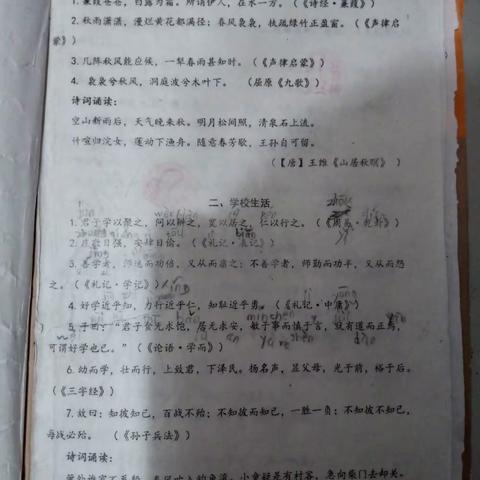 1. 蒹葭苍苍，白露为霜。所谓伊人，在水一方。（《诗经·蒹葭》）
2. 秋雨潇潇，漫烂黄花都满径；春风袅袅，扶疏绿竹正盈窗。（《声律启
蒙》）
3. 几阵秋风能应候，一犁春雨甚知时。（《声律启蒙》）
4. 袅袅兮秋风，洞庭波兮木叶下。（屈原《九歌》）
诗词诵读：
空山新雨后，天气晚来秋。明月松间照，清泉石上流。
竹喧归浣女，莲动下渔舟。随意春芳歇，王孙自可留。
（【唐】王维《山居秋暝》）
二、学校生活
1. 君子学以聚之，问以辩之，宽以居之，仁以行之。（《周易·乾卦》）
2. 庄敬日强，安肆日偷。（《礼记·表记》）
3. 善学者，师逸而功倍，又从而庸之；不善学者，师勤而功半，又从而怨
之。（《礼记·学记》）
4. 好学近乎知，力行近乎仁，知耻近乎勇。（《礼记·中庸》）
5. 子曰：“君子食无求饱，居无求安，敏于事而慎于言，就有道而正焉，
可谓好学也已。”（《论语·学而》）
6. 幼而学，壮而行，上致君，下泽民。扬名声，显父母，光于前，裕于后。
（《三字经》）
7. 故曰：知彼知己，百战不殆；不知彼而知己，一胜一负；不知彼不知己，
每战必殆。（《孙子兵法》）
诗词诵读：